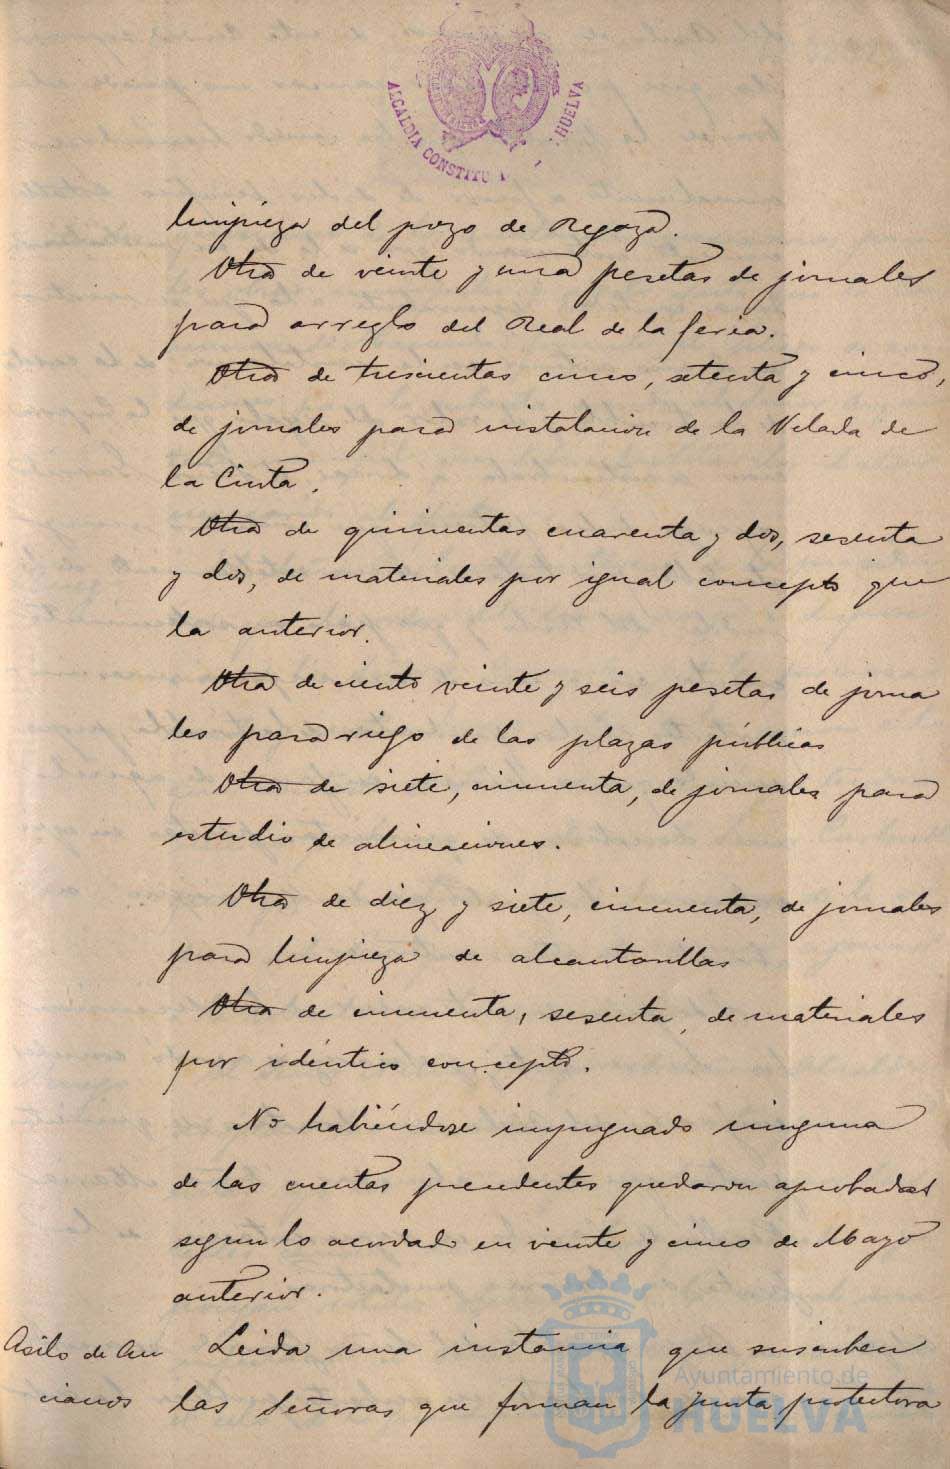 ALCALDIA CONSTITU HUELVA
limpieza del pozo de
Otra de veinte y una pesetas de jornales
para arreglo del Real de la feria.
Otra de trescientas cinco, setenta y cinco,
de jornales para instalacion de la Velada de
la Cinta.
Otra de quinientas cuarenta y dos, sesenta
y dos, de materiales por igual concepto que
la anterior.
Otra de ciento veinte y seis pesetas de jorna
les para riego de las plazas públicas
Otra de siete, cincuenta, de jornales para
estudio de alineaciones.
Otra de diez y siete, cincuenta, de jornales
para limpieza de alcantarillas
Otra de cincuenta, sesenta, de materiales
por idéntico concepto.
No habiéndose impugnado ninguna
de las cuentas precedentes quedaron aprobadas
segun lo acordado en veinte y cinco de Mayo
anterior.
Asilo de An
cianos
Leida una instancia que suscriben
las Señoras que forman la junta protectora
Ayuntamiento de
HUELVA